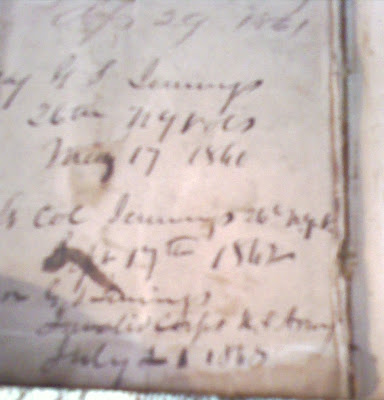 29 1861
G S Jennings
26th NY Vols
May 17 1861
Col Jennings 26th N.Y.
Sept 17th 1862
G S Jennings
Invalid Corps U.S. Army
July 21 1863